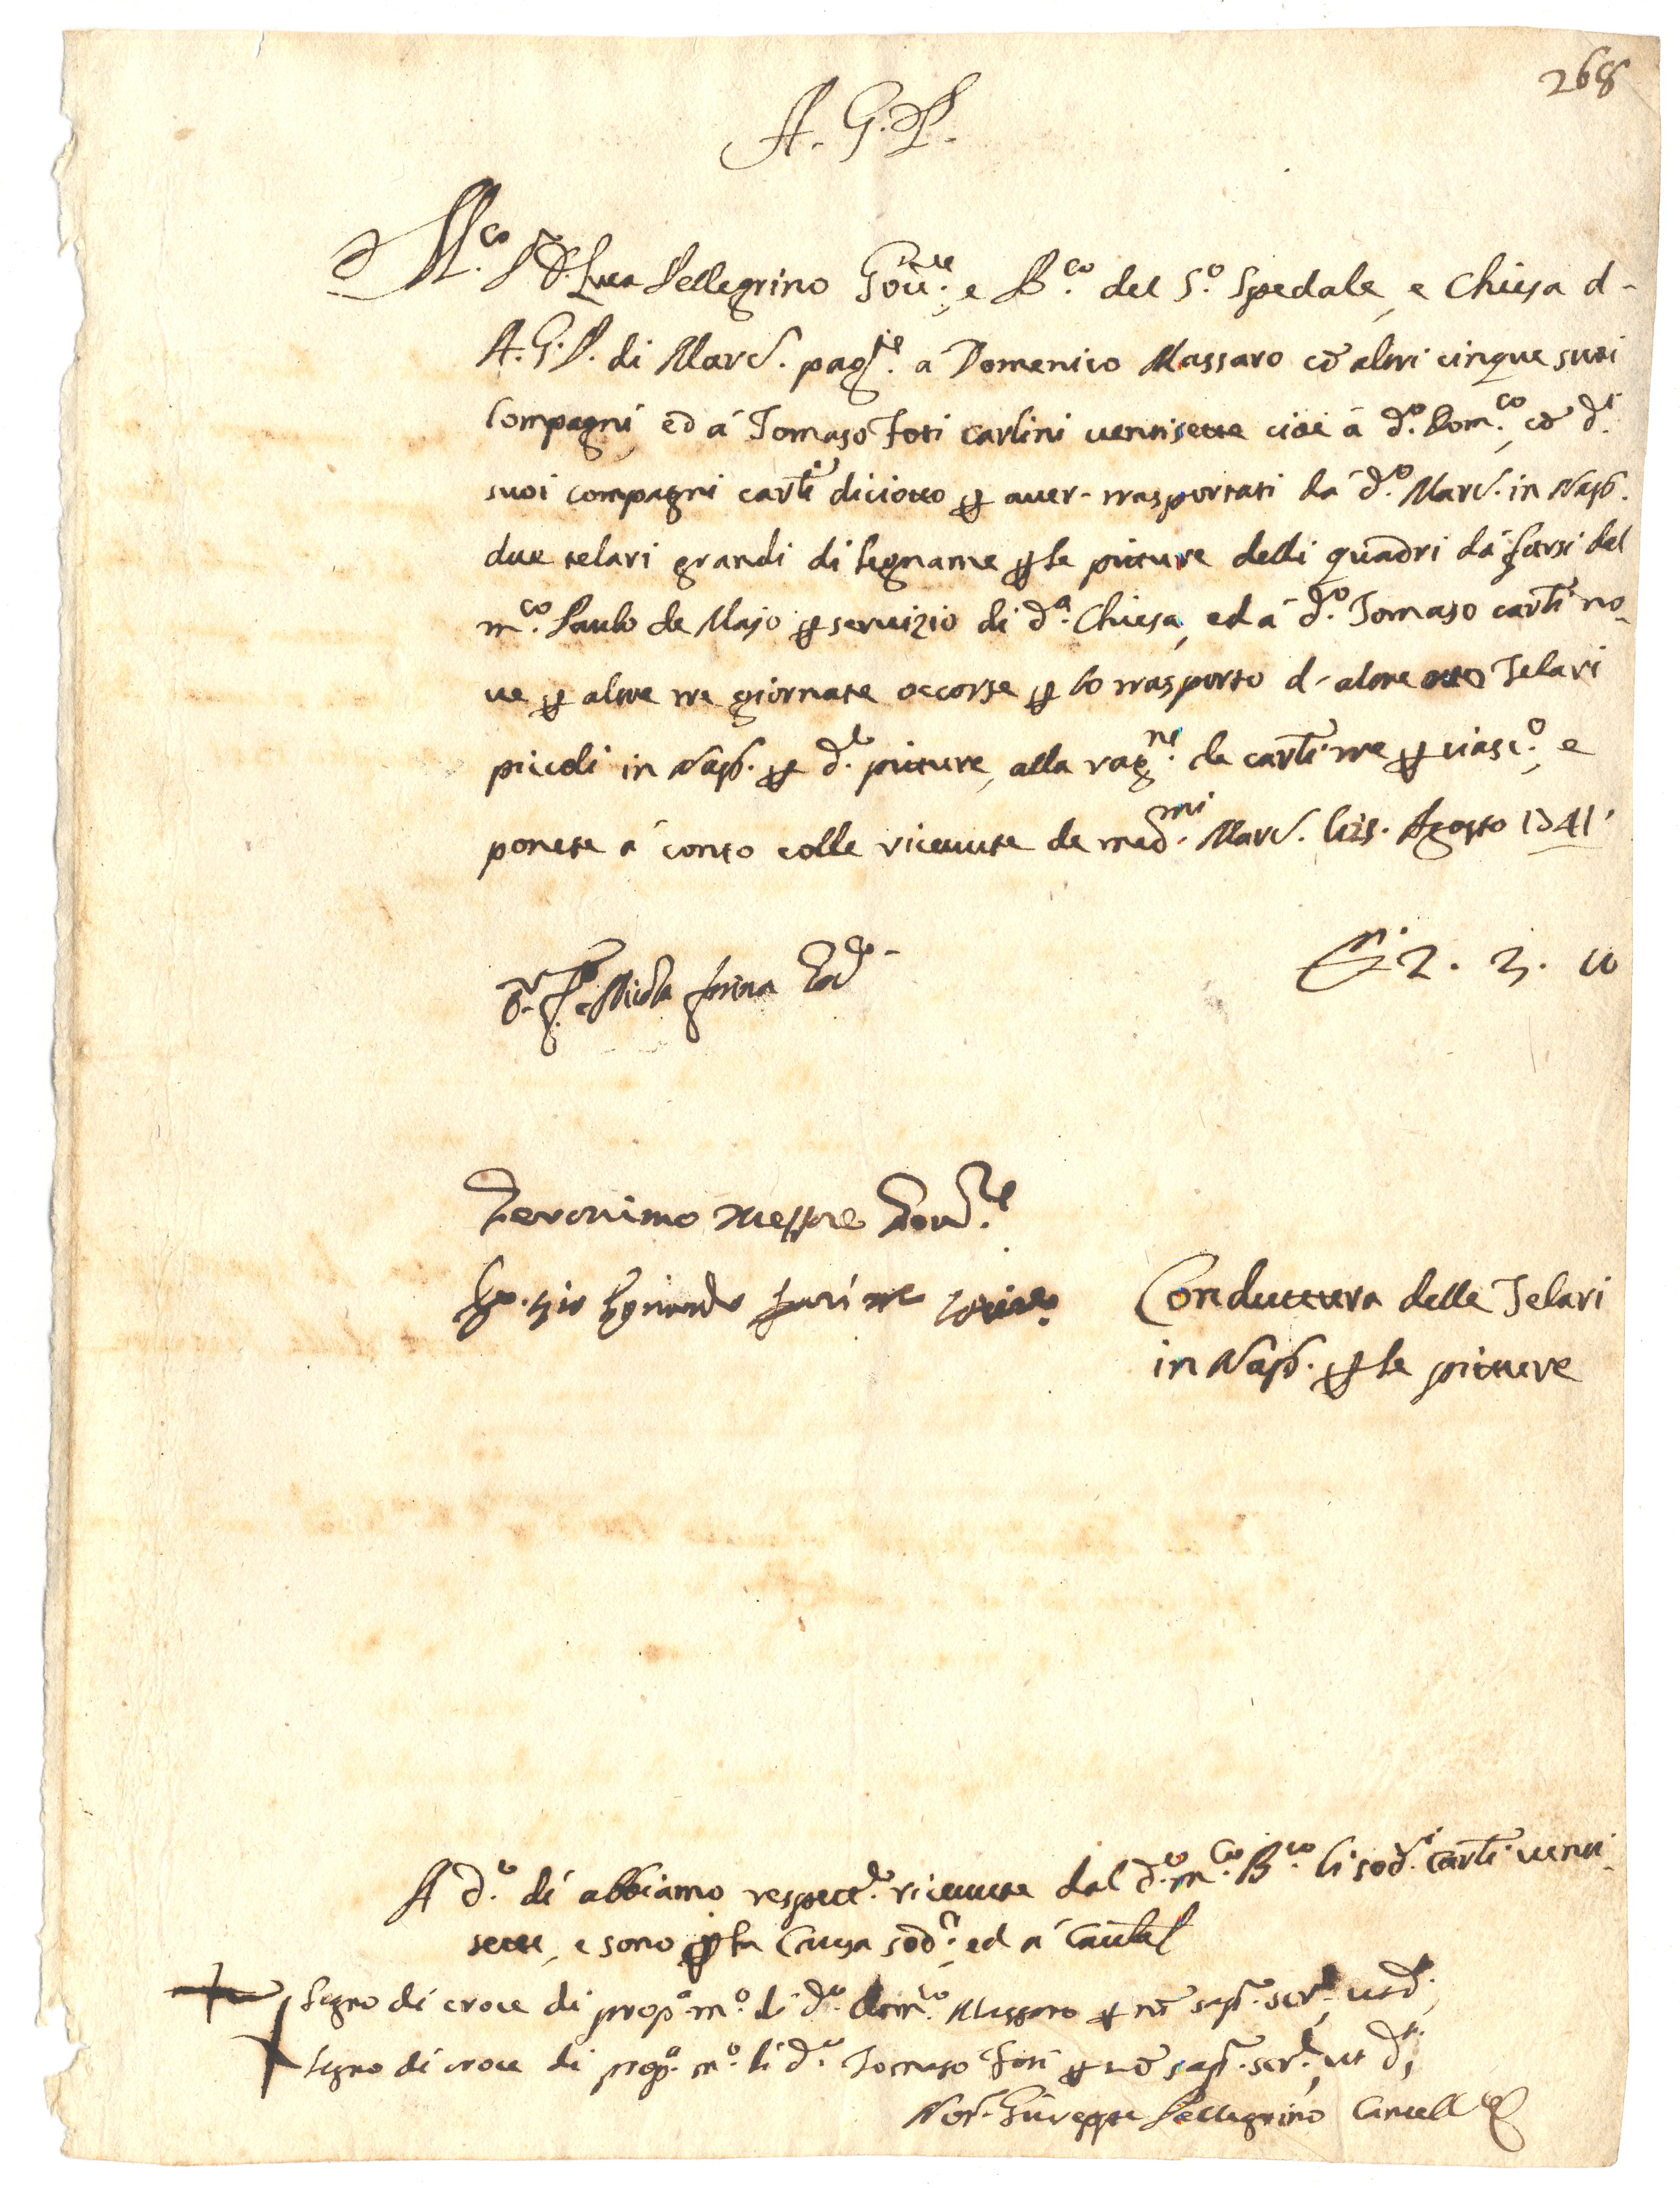 268
A. G. P.
M.co S.r D. Luca Pellegrino Gov.re, e B.co del S.o Spedale, e Chiesa d-
A. G. P. di Marc.e pag.te a Domenico Massaro cō altri cinque suoi
Compagni, ed á Tomaso Foti carlini ventisette cioè á d.o Dom.co, cō d.i
suoi compagni carl.i diciotto ꝑ aver- trasportati da d.o Marc. in Nap.
due telari grandi di legname ꝑ le pitture delli quadri da farsi dal
m.co Paulo de Majo ꝑ servizio di d.a Chiesa, ed á d.o Tomaso carl.i no-
ve ꝑ altre tre giornate occorse ꝑ lo trasporto d- altre otto Telari
piccoli in Nap. ꝑ d.e pitture, alla rag.ne de carl.i tre ꝑ ciasc.o, e
ponete á conto colle ricevute de med.mi Marc. li 25. Agosto 1741.
Nicola Gov.
D.i 2. 3. 10
Geronimo Gov.re
Conduttura delle Telari
in Nap. ꝑ le pitture
A d.o dí abbiamo respett.e ricevute dal d.o m.co B.co li sod.i carl.i venti
sette, e sono ꝑ la Causa sod.a, ed á Cautel
Segno di croce di prop.a m.o di d.o Dom.co Massaro ꝑ nō sap.r scr.e, ut d.r,
Segno di croce di prop.a m.o di d.o Tomaso Foti ꝑ nō sap.r scr.e, ut d.r,
Not.r Giuseppe Pellegrino Cancell.e